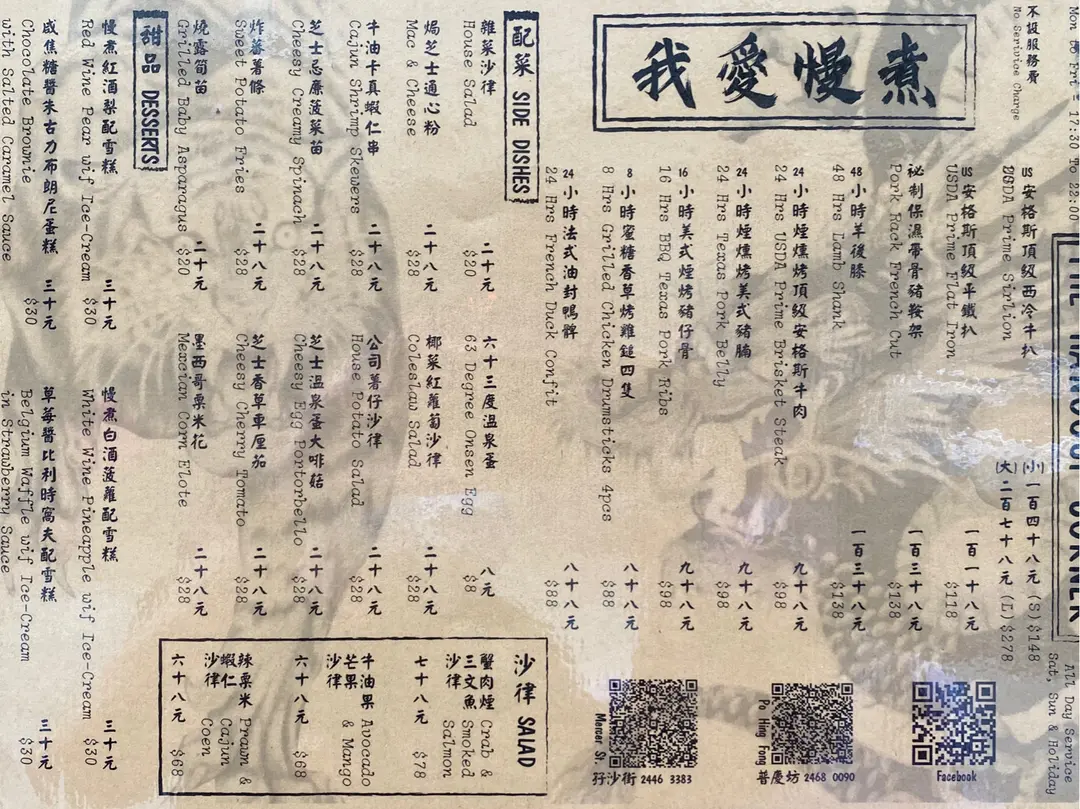 我愛慢煮
Mon 至 Fri : 17:30 To 22:00
不設服務費
No Serivice Charge
All Day Service
Sat, Sun & Holiday
US 安格斯頂級西冷牛扒
USDA Prime Sirlion
(小)一百四十八元 (S) $148
(大)二百七十八元 (L) $278
US 安格斯頂級平鐵扒 一百一十八元
USDA Prime Flat Iron $118
秘制保濕帶骨豬鞍架 一百三十八元
Pork Rack French Cut $138
48 小時羊後膝 一百三十八元
48 Hrs Lamb Shank $138
24 小時煙燻烤頂級安格斯牛肉 九十八元
24 Hrs USDA Prime Brisket Steak $98
24 小時煙燻烤美式豬腩 九十八元
24 Hrs Texas Pork Belly $98
16 小時美式煙烤豬仔骨 九十八元
16 Hrs BBQ Texas Pork Ribs $98
8 小時蜜糖香草烤雞鎚四隻 八十八元
8 Hrs Grilled Chicken Drumsticks 4pcs $88
24 小時法式油封鴨髀 八十八元
24 Hrs French Duck Confit $88
配菜 SIDE DISHES
雜菜沙律 二十元
House Salad $20
六十三度温泉蛋 八元
63 Degree Onsen Egg $8
焗芝士通心粉 二十八元
Mac & Cheese $28
椰菜紅蘿蔔沙律 二十八元
Coleslaw Salad $28
牛油卡真蝦仁串 二十八元
Cajun Shrimp Skewers $28
公司薯仔沙律 二十八元
House Potato Salad $28
芝士忌廉菠菜苗 二十八元
Cheesy Creamy Spinach $28
芝士温泉蛋大啡菇 二十八元
Cheesy Egg Portorbello $28
炸蕃薯條 二十八元
Sweet Potato Fries $28
芝士香草車厘茄 二十八元
Cheesy Cherry Tomato $28
燒露筍苗 二十元
Grilled Baby Asparagus $20
墨西哥粟米花 二十八元
Mexcian Corn Elote $28
甜品 DESSERTS
慢煮紅酒梨配雪糕 三十元
Red Wine Pear wif Ice-Cream $30
慢煮白酒菠蘿配雪糕 三十元
White Wine Pineapple wif Ice-Cream $30
咸焦糖醬朱古力布朗尼蛋糕 三十元
Chocolate Brownie $30
with Salted Caramel Sauce
草莓醬比利時窩夫配雪糕 三十元
Belgium Waffle wif Ice-Cream $30
in Strawberry Sauce
沙律 SALAD
蟹肉煙三文魚沙律
Crab & Smoked Salmon
七十八元 $78
牛油果芒果沙律
Avocado & Mango
六十八元 $68
辣粟米蝦仁沙律
Prawn & Cajun Coen
六十八元 $68
Facebook
Po Hing Fong
普慶坊 2468 0090
Mercer St.
孖沙街 2446 3383